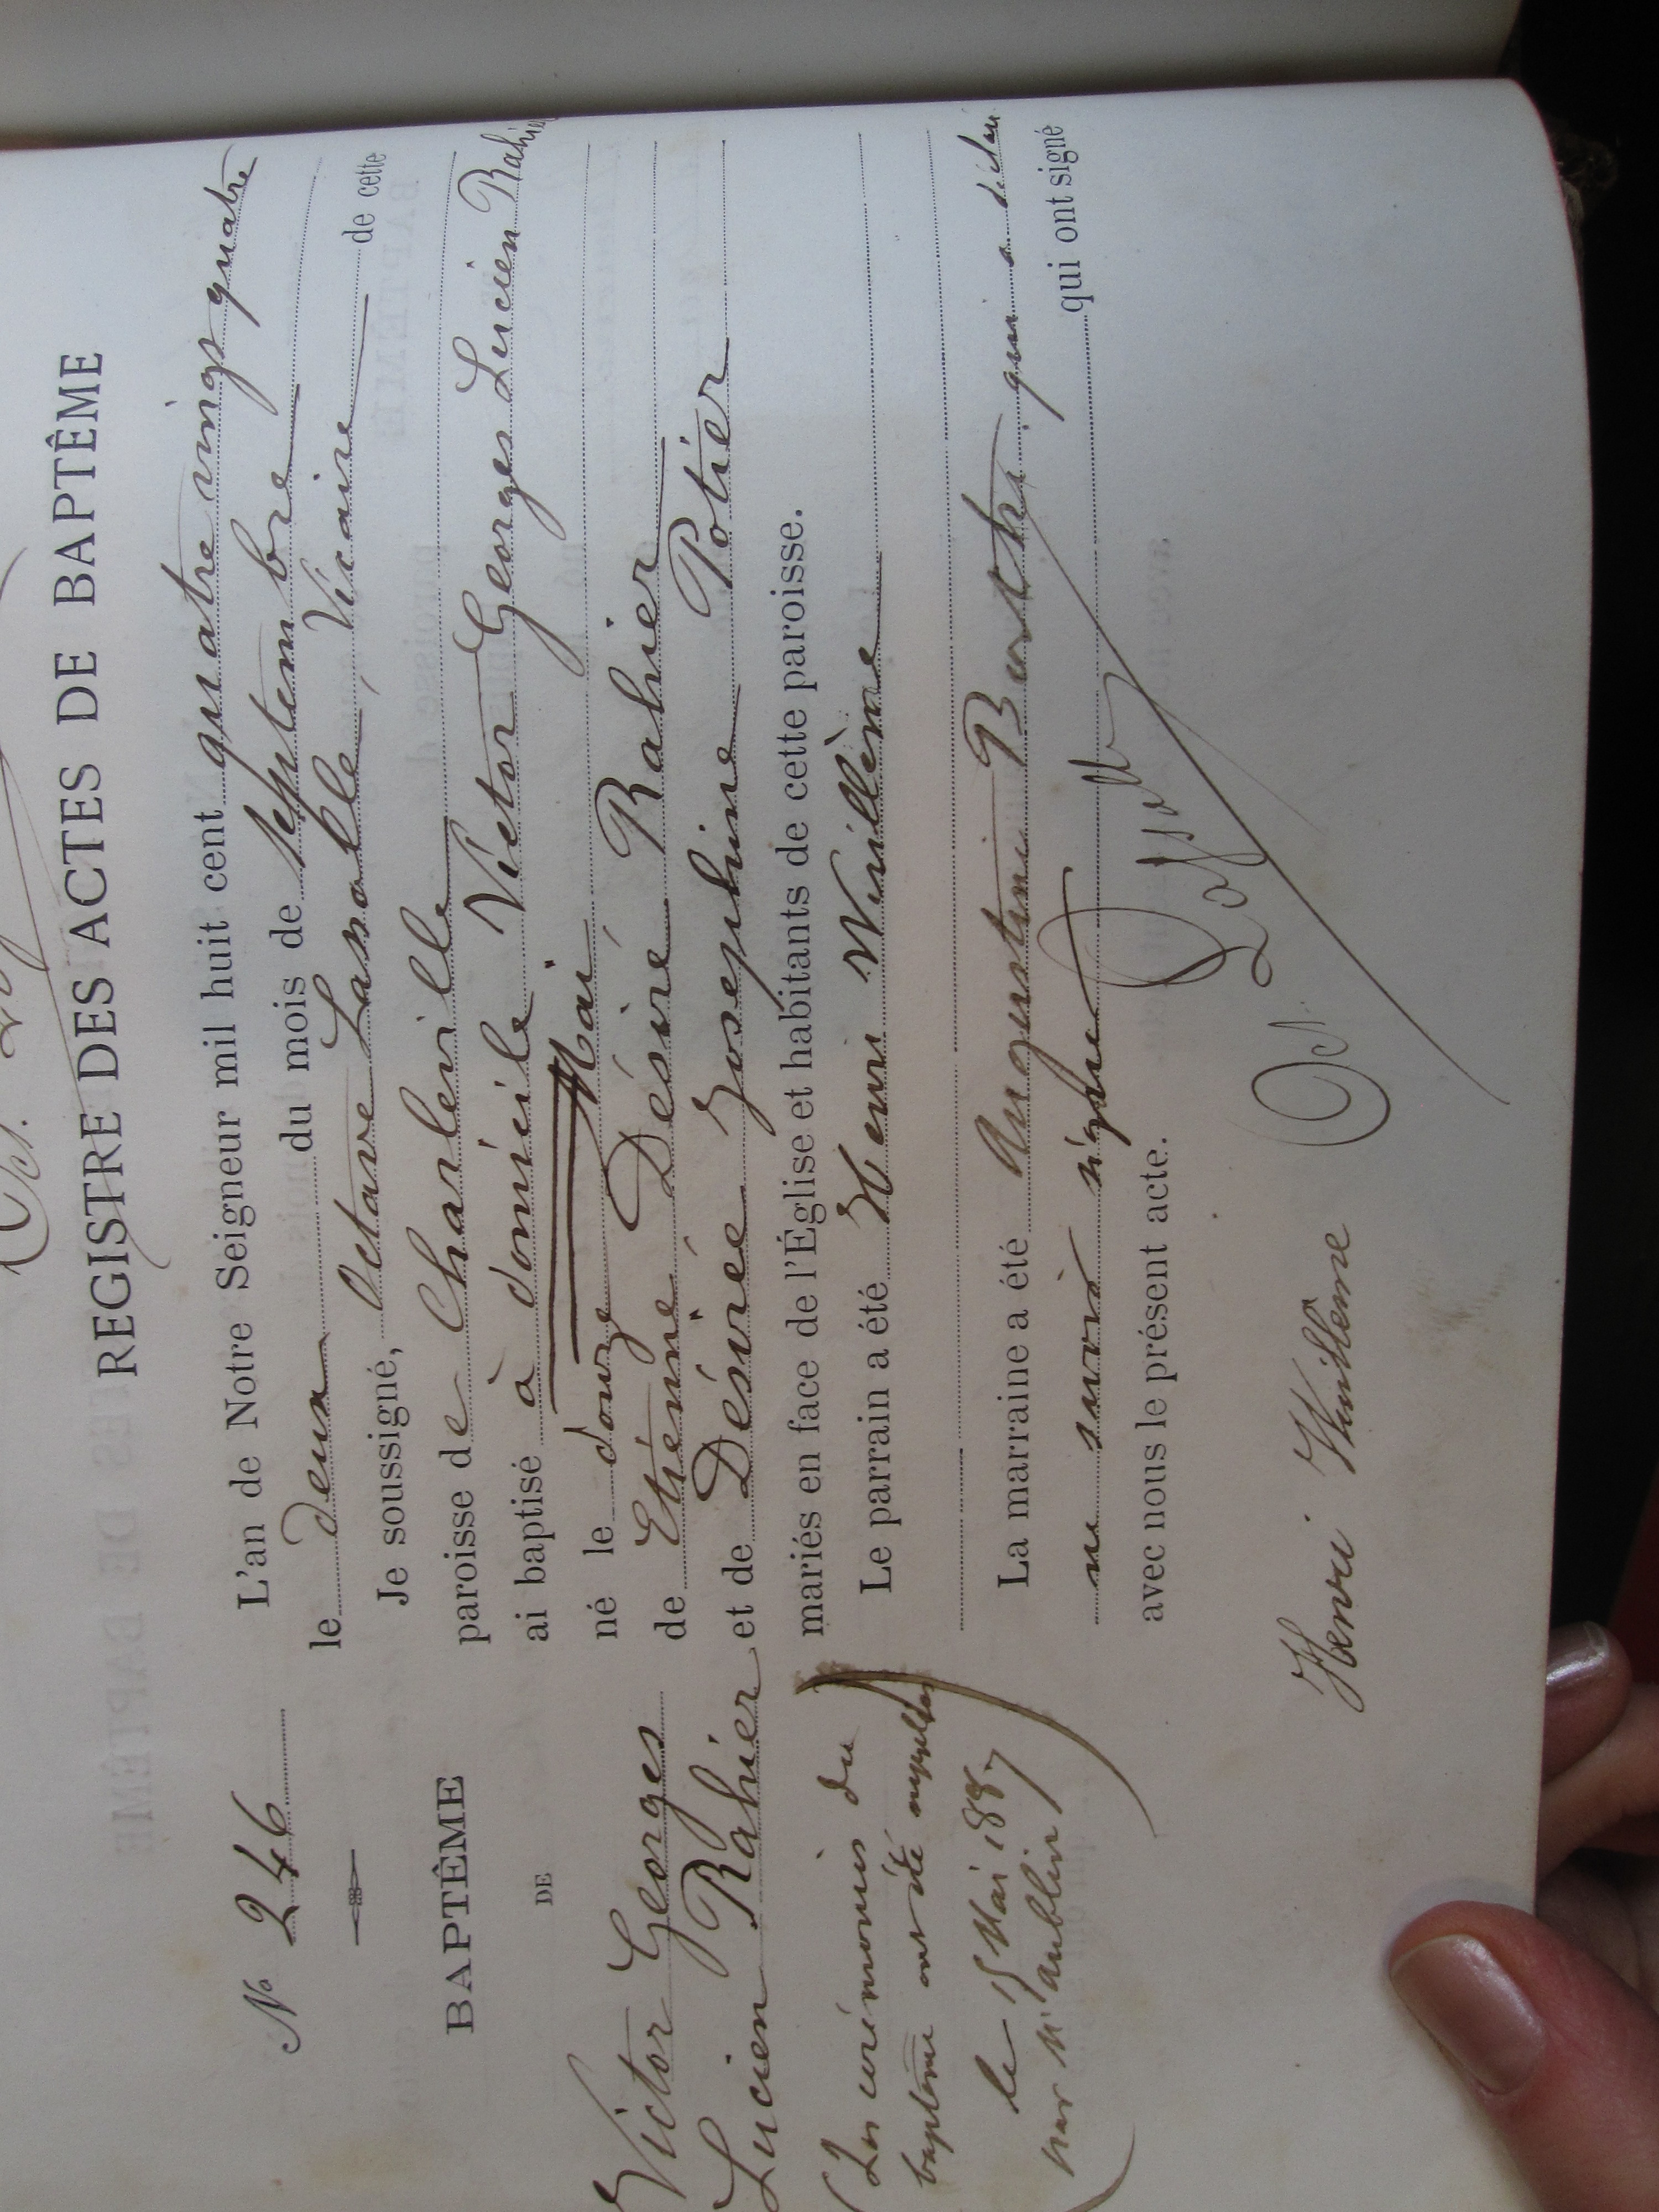 REGISTRE DES ACTES DE BAPTÊME
N° 246
BAPTÊME
DE
Victor Georges
Lucien Rahier
(Les cérémonies du
baptême ont été supplées
le 15 Mai 1887
par M. Aublin)
L'an de Notre Seigneur mil huit cent quatre vingt quatre
le deux du mois de septembre
Je soussigné, Octave Lasalle, Vicaire de cette
paroisse de Charleville
ai baptisé à domicile Victor Georges Lucien Rahier
né le douze Mai
de Etienne Désiré Rahier
et de Désirée Josephine Potier
mariés en face de l'Église et habitants de cette paroisse.
Le parrain a été Henri Willème
La marraine a été Augustine qui a déclaré
ne savoir signer qui ont signé
avec nous le présent acte.
Henri Willème